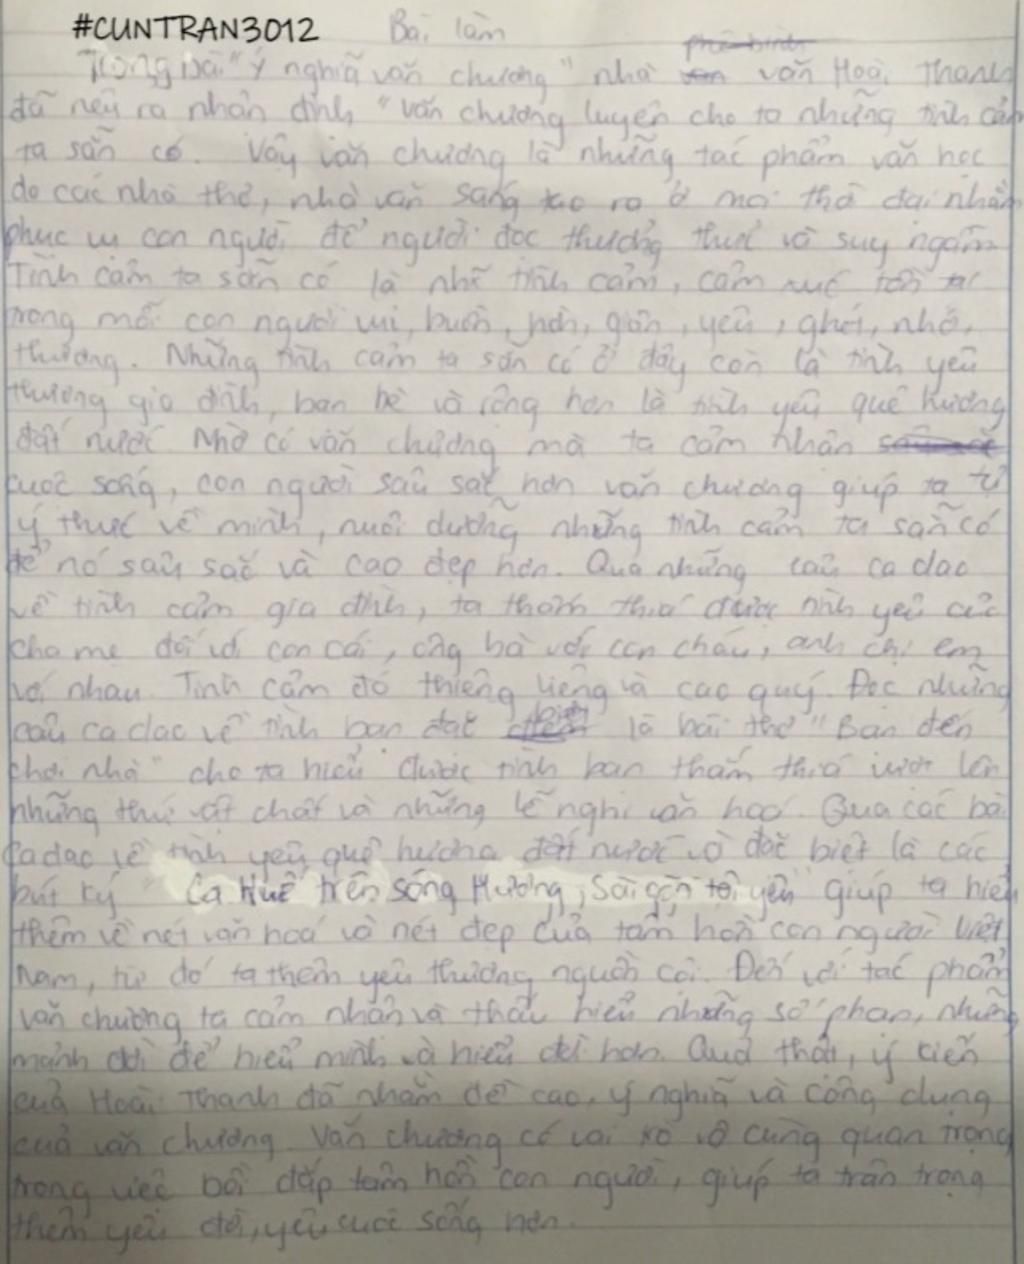 #CUNTRAN3012 Bài làm
Trong bài "Ý nghĩa văn chương" nhà văn Hoài Thanh
đã nêu ra nhận định "văn chương luyện cho ta những tình cảm
ta sẵn có. Vậy văn chương là những tác phẩm văn học
do các nhà thơ, nhà văn sáng tạo ra ở mọi thời đại nhằm
phục vụ con người để người đọc thưởng thức và suy ngẫm
Tình cảm ta sẵn có là nhữ tình cảm, cảm xúc tồn tại
trong mỗi con người vui, buồn, hờn, giận, yêu, ghét, nhớ,
thương. Những tình cảm ta sẵn có ở đây còn là tình yêu
thương gia đình, bạn bè và rộng hơn là tình yêu quê hương
đất nước Nhờ có văn chương mà ta cảm nhận
cuộc sống, con người sâu sắc hơn văn chương giúp ta tự
ý thức về mình, nuôi dưỡng những tình cảm ta sẵn có
để nó sâu sắc và cao đẹp hơn. Qua những câu ca dao
về tình cảm gia đình, ta thấm thía được tình yêu của
cha mẹ đối với con cái, ông bà với con cháu, anh chị em
với nhau. Tình cảm đó thiêng liêng và cao quý. Đọc những
câu ca dao về tình bạn đặc biệt là bài thơ "Bạn đến
chơi nhà" cho ta hiểu được tình bạn thắm thiế vượt lên
những thứ vật chất và những lễ nghi văn học. Qua các bài
ca dao về tình yêu quê hương đất nước và đặc biệt là các
bút ký "Ca Huế trên sông Hương, Sài gòn tôi yêu giúp ta hiểu
thêm về nét văn hoá và nét đẹp của tâm hồn con người Việt
Nam, từ đó ta thêm yêu thương nguồn cội. Đến với tác phẩm
văn chương ta cảm nhận và thấu hiểu những số phận, những
mảnh đời để hiểu mình và hiểu đời hơn. Quả thật, ý kiến
của Hoài Thanh đã nhằm đề cao, ý nghĩa và công dụng
của văn chương. Văn chương có vai trò vô cùng quan trọng
trong việc bồi đắp tâm hồn con người, giúp ta trân trọng
thêm yêu đời, yêu cuộc sống hơn.